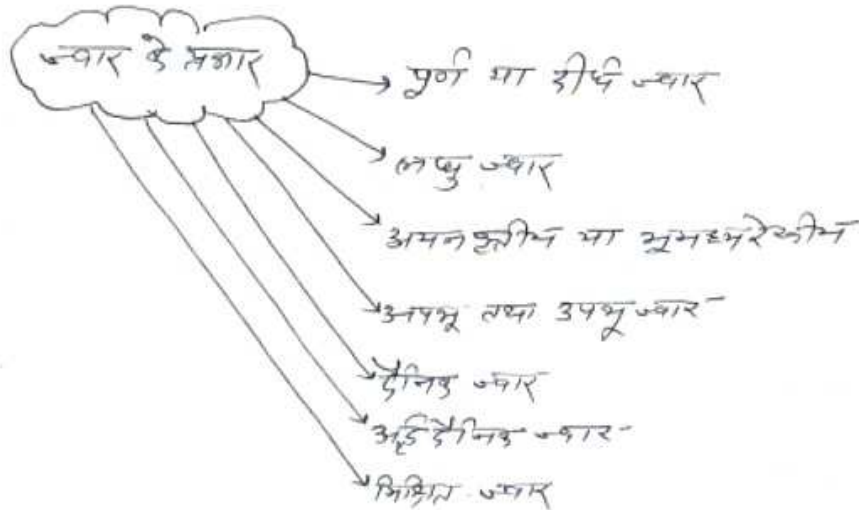 ज्वार के प्रकार
पूर्ण या दीर्घ ज्वार
लघु ज्वार
अयनवृत्तीय या भूमध्यरेखीय
अपभू तथा उपभू ज्वार
दैनिक ज्वार
अर्द्धदैनिक ज्वार
मिश्रित ज्वार